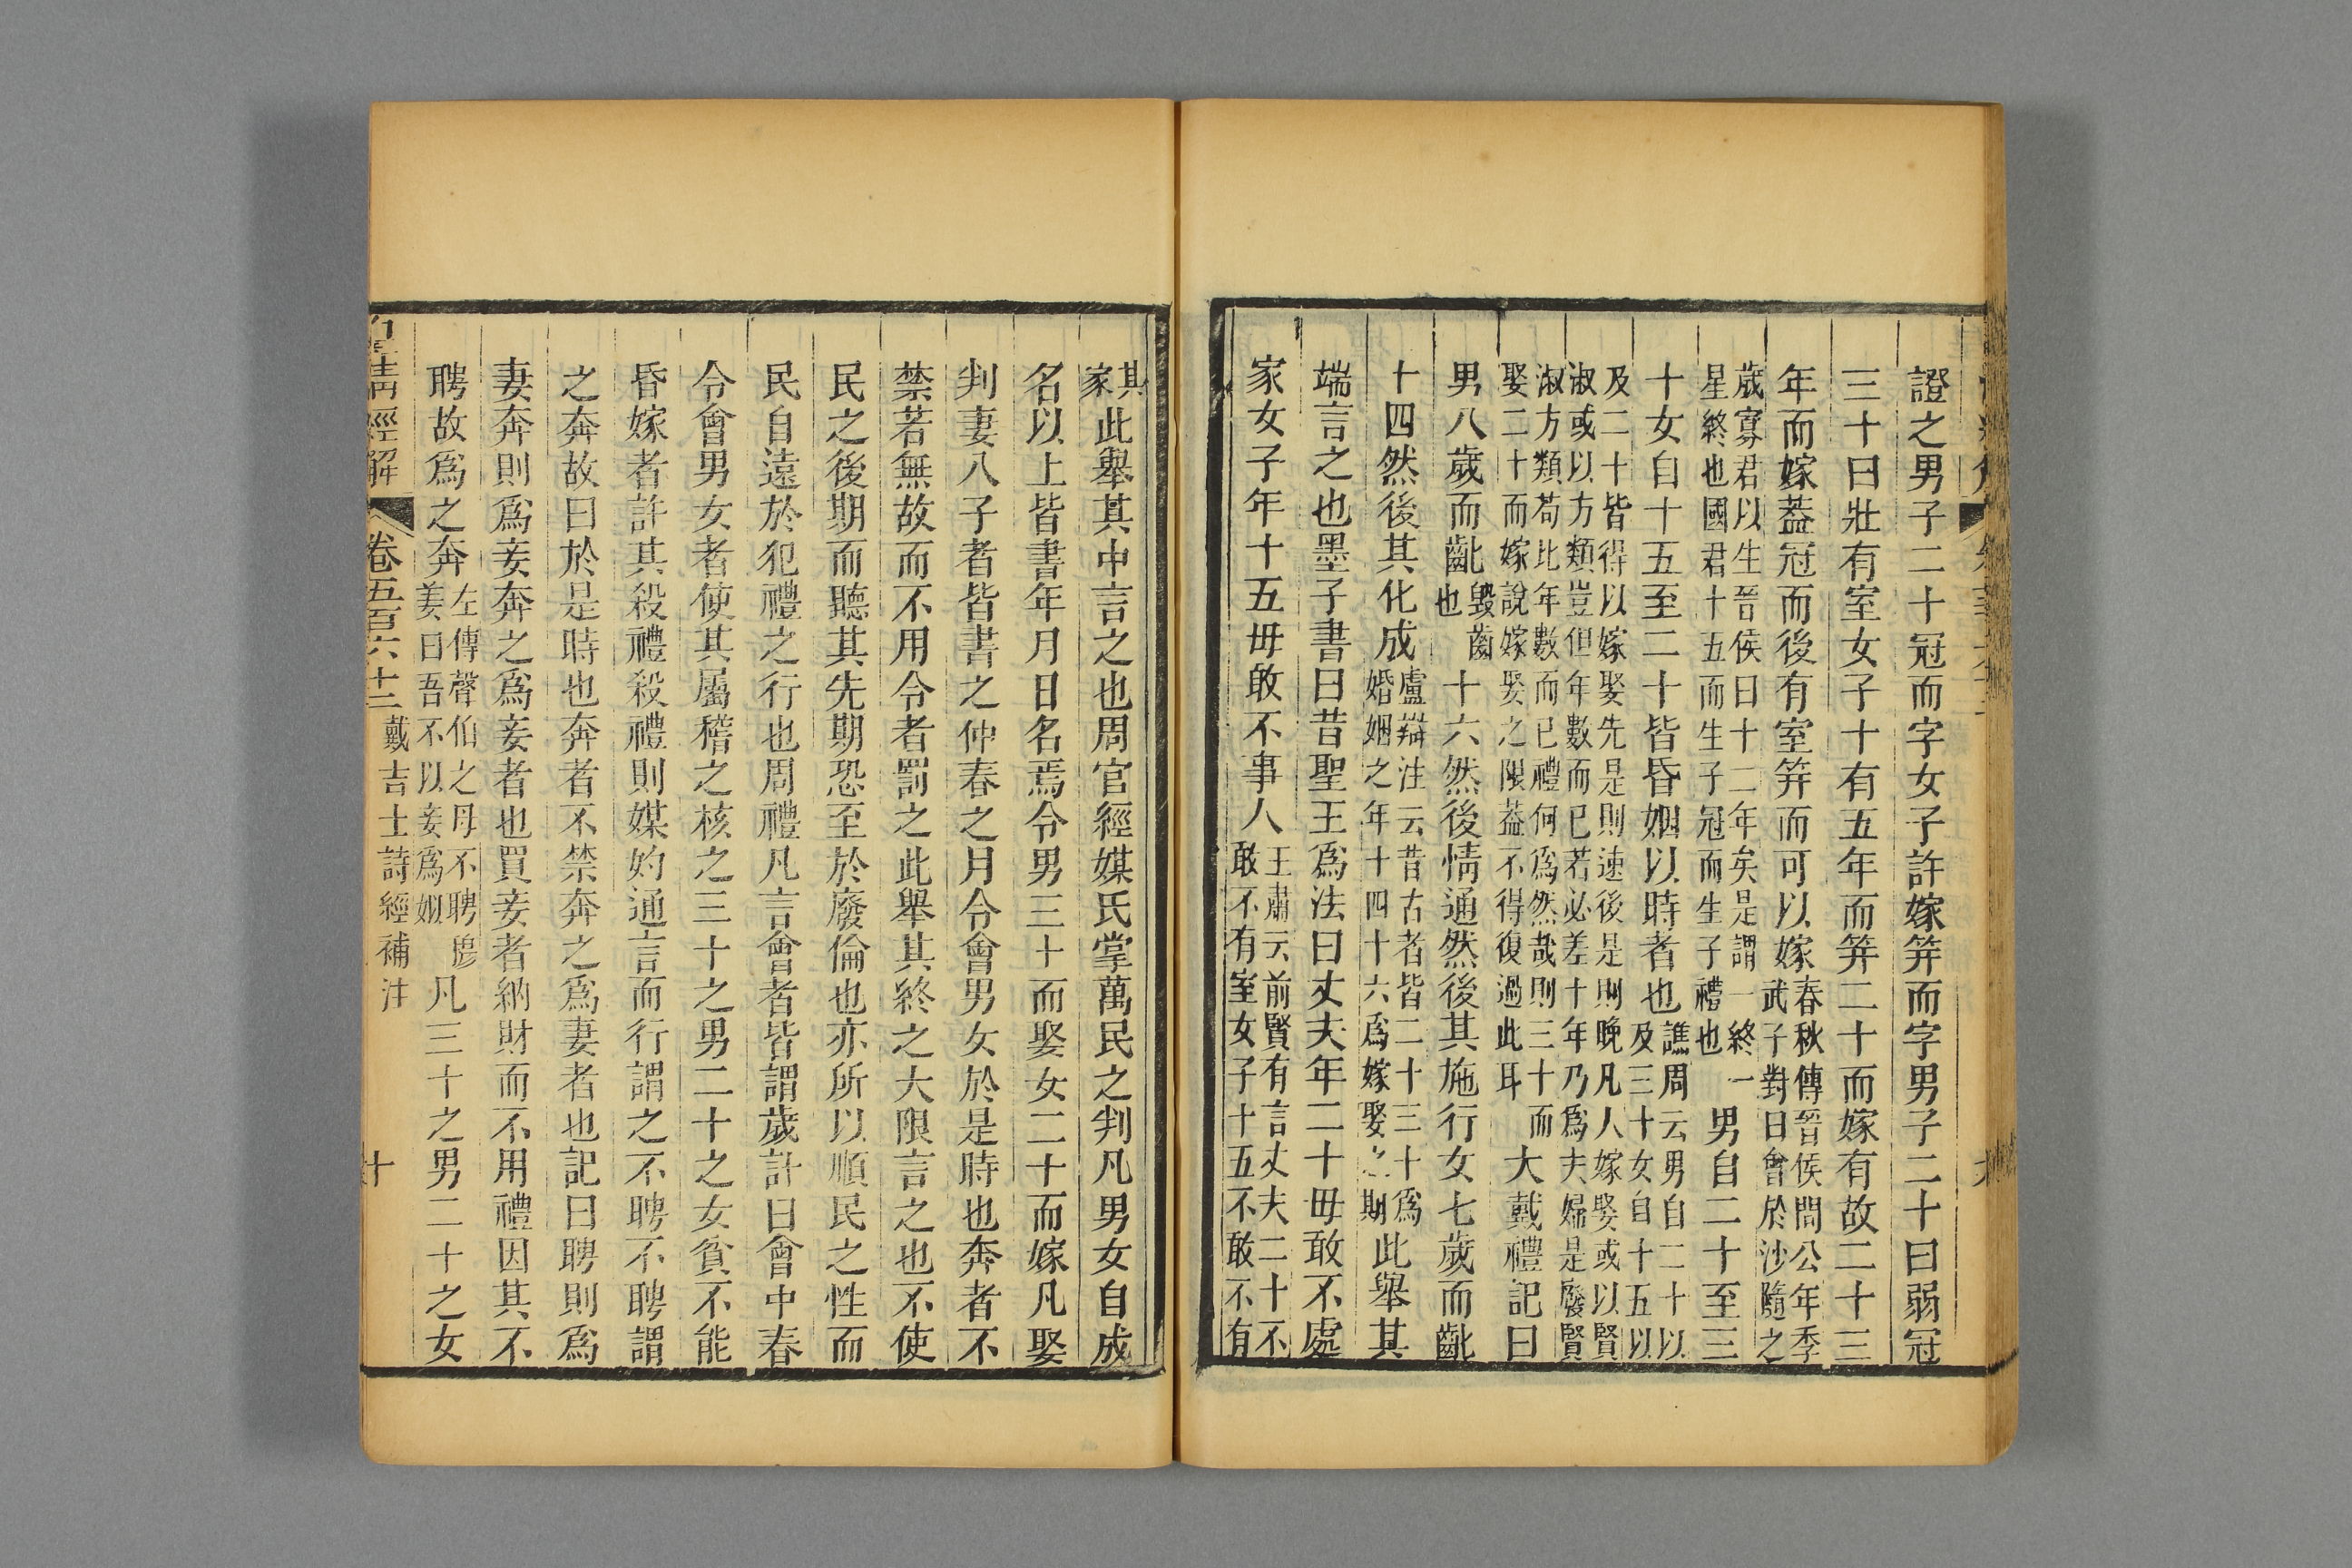 證之男子二十冠而字女子許嫁筓而字男子二十曰弱冠
三十曰壯有室女子十有五年而筓二十而嫁有故二十三
年而嫁葢冠而後有室筓而可以嫁春秋傳晉侯問公年季武子對曰會於沙隨之
歲寡君以生晉侯曰十二年矣是謂一終一星終也國君十五而生子冠而生子禮也男自二十至三
十女自十五至二十皆昏姻以時者也譙周云男自二十以及三十女自十五以
及二十皆得以嫁娶先是則速後是則晚凡人嫁娶或以賢淑或以方類豈但年數而已若必差十年乃爲夫婦是廢賢
淑方類苟比年數而已禮何爲然哉則三十而娶二十而嫁說嫁娶之限葢不得復過此耳大戴禮記曰
男八歲而齔毀齒也十六然後情通然後其施行女七歲而齔
十四然後其化成盧辯注云昔古者皆二十三十爲婚姻之年十四十六爲嫁娶之期此舉其
端言之也墨子書曰昔聖王爲法曰丈夫年二十毋敢不處
家女子年十五毋敢不事人王肅云前賢有言丈夫二十不敢不有室女子十五不敢不有
其家此舉其中言之也周官經媒氏掌萬民之判凡男女自成
名以上皆書年月日名焉令男三十而娶女二十而嫁凡娶
判妻入子者皆書之仲春之月令會男女於是時也奔者不
禁若無故而不用令者罰之此舉其終之大限言之也不使
民之後期而聽其先期恐至於廢倫也亦所以順民之性而
民自遠於犯禮之行也周禮凡言會者皆謂歲計曰會中春
令會男女者使其屬稽之核之三十之男二十之女貧不能
昏嫁者許其殺禮殺禮則媒妁通言而行謂之不聘不聘謂
之奔故曰於是時也奔者不禁奔之爲妻者也記曰聘則爲
妻奔則爲妾奔之爲妾者也買妾者納財而不用禮因其不
聘故爲之奔左傳聲伯之母不聘穆姜曰吾不以妾爲姒凡三十之男二十之女
皇清經解
卷五百六十二
戴吉士詩經補注
十